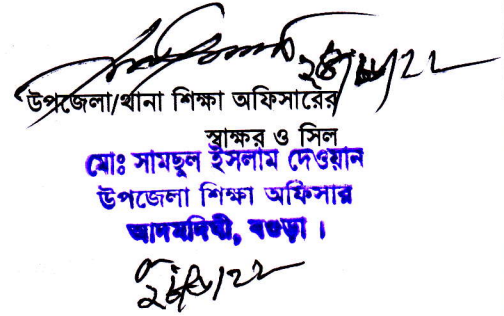 উপজেলা/থানা শিক্ষা অফিসারের
স্বাক্ষর ও সিল
মোঃ সামছুল ইসলাম দেওয়ান
উপজেলা শিক্ষা অফিসার
আদমদিঘী, বগুড়া ।